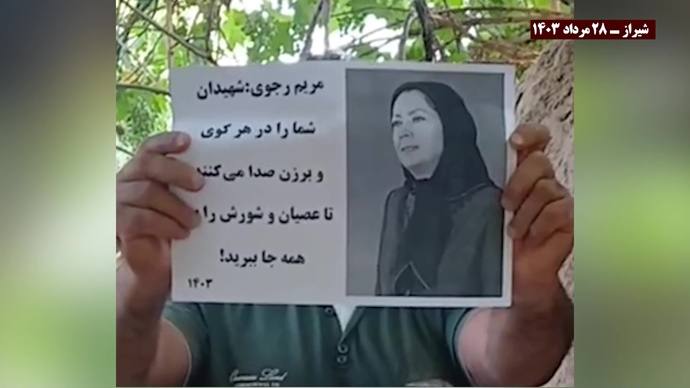 شیراز ــ ۲۸ مرداد ۱۴۰۳
مریم رجوی:شهیدان
شما را در هر کوی
و برزن صدا می‌کنند
تا عصیان و شورش را
همه جا ببرید!
۱۴۰۳